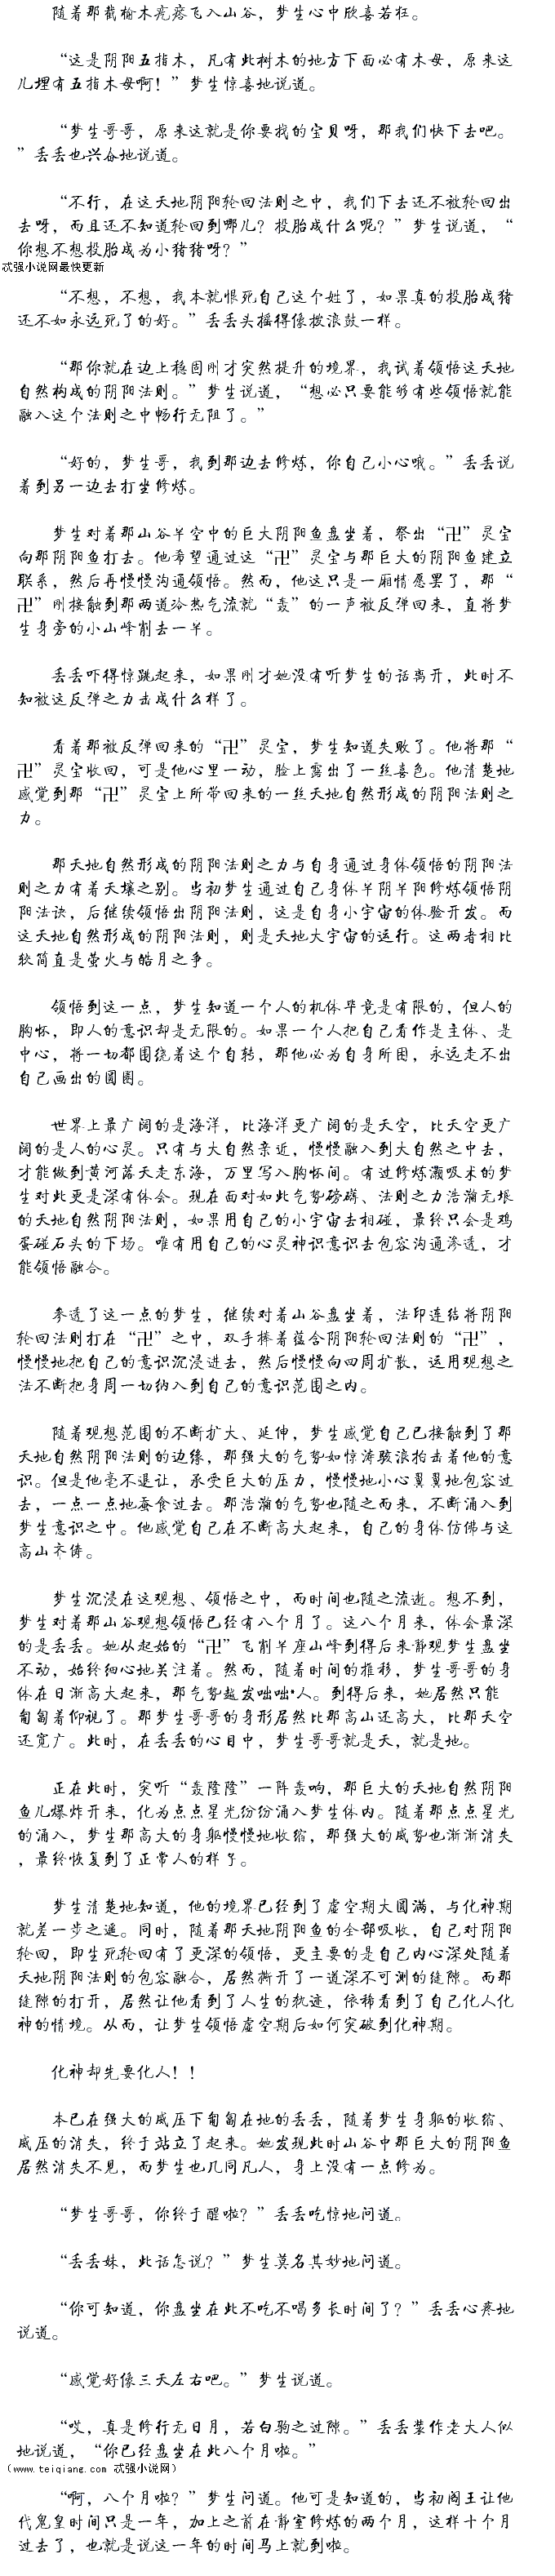 随着那截榆木疙瘩飞入山谷，梦生心中欣喜若狂。
“这是阴阳五指木，凡有此树木的地方下面必有木母，原来这
儿埋有五指木母啊！”梦生惊喜地说道。
“梦生哥哥，原来这就是你要找的宝贝呀，那我们快下去吧。
”丢丢也兴奋地说道。
“不行，在这天地阴阳轮回法则之中，我们下去还不被轮回出
去呀，而且还不知道轮回到哪儿？投胎成什么呢？”梦生说道，“
你想不想投胎成为小猪猪呀？”
忒强小说网最快更新
“不想，不想，我本就恨死自己这个姓了，如果真的投胎成猪
还不如永远死了的好。”丢丢头摇得像拨浪鼓一样。
“那你就在边上稳固刚才突然提升的境界，我试着领悟这天地
自然构成的阴阳法则。”梦生说道，“想必只要能够有些领悟就能
融入这个法则之中畅行无阻了。”
“好的，梦生哥，我到那边去修炼，你自己小心哦。”丢丢说
着到另一边去打坐修炼。
梦生对着那山谷半空中的巨大阴阳鱼盘坐着，祭出“卍”灵宝
向那阴阳鱼打去。他希望通过这“卍”灵宝与那巨大的阴阳鱼建立
联系，然后再慢慢沟通领悟。然而，他这只是一厢情愿罢了，那“
卍”刚接触到那两道冷热气流就“轰”的一声被反弹回来，直将梦
生身旁的小山峰削去一半。
丢丢吓得惊跳起来，如果刚才她没有听梦生的话离开，此时不
知被这反弹之力击成什么样了。
看着那被反弹回来的“卍”灵宝，梦生知道失败了。他将那“
卍”灵宝收回，可是他心里一动，脸上露出了一丝喜色。他清楚地
感觉到那“卍”灵宝上所带回来的一丝天地自然形成的阴阳法则之
力。
那天地自然形成的阴阳法则之力与自身通过身体领悟的阴阳法
则之力有着天壤之别。当初梦生通过自己身体半阴半阳修炼领悟阴
阳法诀，后继续领悟出阴阳法则，这是自身小宇宙的体验开发。而
这天地自然形成的阴阳法则，则是天地大宇宙的运行。这两者相比
较简直是萤火与皓月之争。
领悟到这一点，梦生知道一个人的机体毕竟是有限的，但人的
胸怀，即人的意识却是无限的。如果一个人把自己看作是主体、是
中心，将一切都围绕着这个自转，那他必为自身所困，永远走不出
自己画出的圆圈。
世界上最广阔的是海洋，比海洋更广阔的是天空，比天空更广
阔的是人的心灵。只有与大自然亲近，慢慢融入到大自然之中去，
才能做到黄河落天走东海，万里写入胸怀间。有过修炼灏吸术的梦
生对此更是深有体会。现在面对如此气势磅礴、法则之力浩瀚无垠
的天地自然阴阳法则，如果用自己的小宇宙去相碰，最终只会是鸡
蛋碰石头的下场。唯有用自己的心灵神识意识去包容沟通渗透，才
能领悟融合。
参透了这一点的梦生，继续对着山谷盘坐着，法印连结将阴阳
轮回法则打在“卍”之中，双手捧着蕴含阴阳轮回法则的“卍”，
慢慢地把自己的意识沉浸进去，然后慢慢向四周扩散，运用观想之
法不断把身周一切纳入到自己的意识范围之内。
随着观想范围的不断扩大、延伸，梦生感觉自己已接触到了那
天地自然阴阳法则的边缘，那强大的气势如惊涛骇浪拍击着他的意
识。但是他毫不退让，承受巨大的压力，慢慢地小心翼翼地包容过
去，一点一点地蚕食过去。那浩瀚的气势也随之而来，不断涌入到
梦生意识之中。他感觉自己在不断高大起来，自己的身体仿佛与这
高山齐俦。
梦生沉浸在这观想、领悟之中，而时间也随之流逝。想不到，
梦生对着那山谷观想领悟已经有八个月了。这八个月来，体会最深
的是丢丢。她从起始的“卍”飞削半座山峰到得后来静观梦生盘坐
不动，始终细心地关注着。然而，随着时间的推移，梦生哥哥的身
体在日渐高大起来，那气势越发咄咄·人。到得后来，她居然只能
匍匐着仰视了。那梦生哥哥的身形居然比那高山还高大，比那天空
还宽广。此时，在丢丢的心目中，梦生哥哥就是天，就是地。
正在此时，突听“轰隆隆”一阵轰响，那巨大的天地自然阴阳
鱼儿爆炸开来，化为点点星光纷纷涌入梦生体内。随着那点点星光
的涌入，梦生那高大的身躯慢慢地收缩，那强大的威势也渐渐消失
，最终恢复到了正常人的样子。
梦生清楚地知道，他的境界已经到了虚空期大圆满，与化神期
就差一步之遥。同时，随着那天地阴阳鱼的全部吸收，自己对阴阳
轮回，即生死轮回有了更深的领悟，更主要的是自己内心深处随着
天地阴阳法则的包容融合，居然撕开了一道深不可测的缝隙。而那
缝隙的打开，居然让他看到了人生的轨迹，依稀看到了自己化人化
神的情境。从而，让梦生领悟虚空期后如何突破到化神期。
化神却先要化人！！
本已在强大的威压下匍匐在地的丢丢，随着梦生身躯的收缩、
威压的消失，终于站立了起来。她发现此时山谷中那巨大的阴阳鱼
居然消失不见，而梦生也几同凡人，身上没有一点修为。
“梦生哥哥，你终于醒啦？”丢丢吃惊地问道。
“丢丢妹，此话怎说？”梦生莫名其妙地问道。
“你可知道，你盘坐在此不吃不喝多长时间了？”丢丢心疼地
说道。
“感觉好像三天左右吧。”梦生说道。
“哎，真是修行无日月，若白驹之过隙。”丢丢装作老大人似
地说道，“你已经盘坐在此八个月啦。”
（www.teiqiang.com 忒强小说网）
“啊，八个月啦？”梦生问道。他可是知道的，当初阎王让他
代鬼皇时间只是一年，加上之前在静室修炼的两个月，这样十个月
过去了，也就是说这一年的时间马上就到啦。